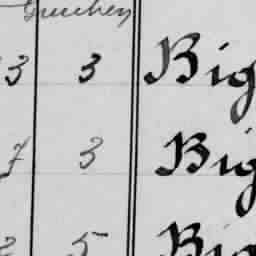 3 3 Big
7 3 Big
5 Big